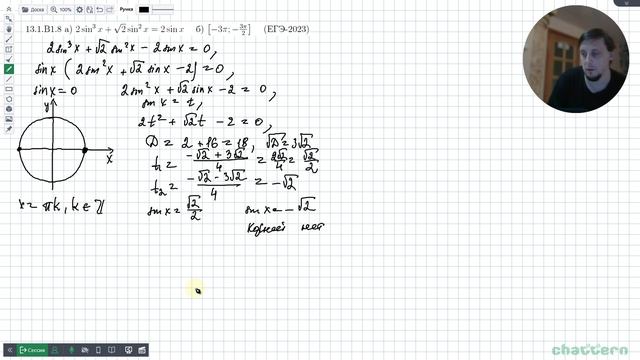 Доска
100%
Ручка
13.1.B1.8 а) 2 sin³ x + √2 sin² x = 2 sin x б) [−3π; −3π/2] (ЕГЭ-2023)
2sin³x + √2 sin²x − 2sinx = 0,
sinx (2sin²x + √2 sinx − 2) = 0,
sinx = 0 2sin²x + √2 sinx − 2 = 0,
sinx = t,
y
2t² + √2t − 2 = 0,
D = 2 + 16 = 18, √D = 3√2
x
t₁ = (−√2 + 3√2)/4 = 2√2/4 = √2/2
t₂ = (−√2 − 3√2)/4 = −√2
x = πk, k ∈ Z
sinx = √2/2 sinx = −√2
корней нет
Сессия
chattern